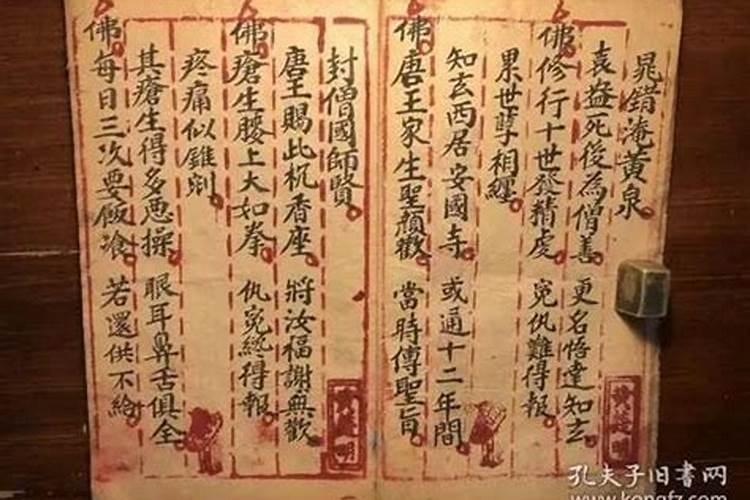 晁錯淹黄泉
袁益死後為僧善 更名悟達知玄
佛修行十世發精虔 冤仇難得報
累世孽相纏
知玄西居安國寺 或通十二年間
佛唐王家生聖顏歡 當時傳聖旨
封僧國師賢
唐王賜此杌香座 將汝福謝無歡
佛瘡生腰上大如拳 仇冤終得報
疼痛似錐剜
其瘡生得多恶操 眼耳鼻舌俱全
佛每日三次要飯飡 若還供不給
孔夫子旧书网